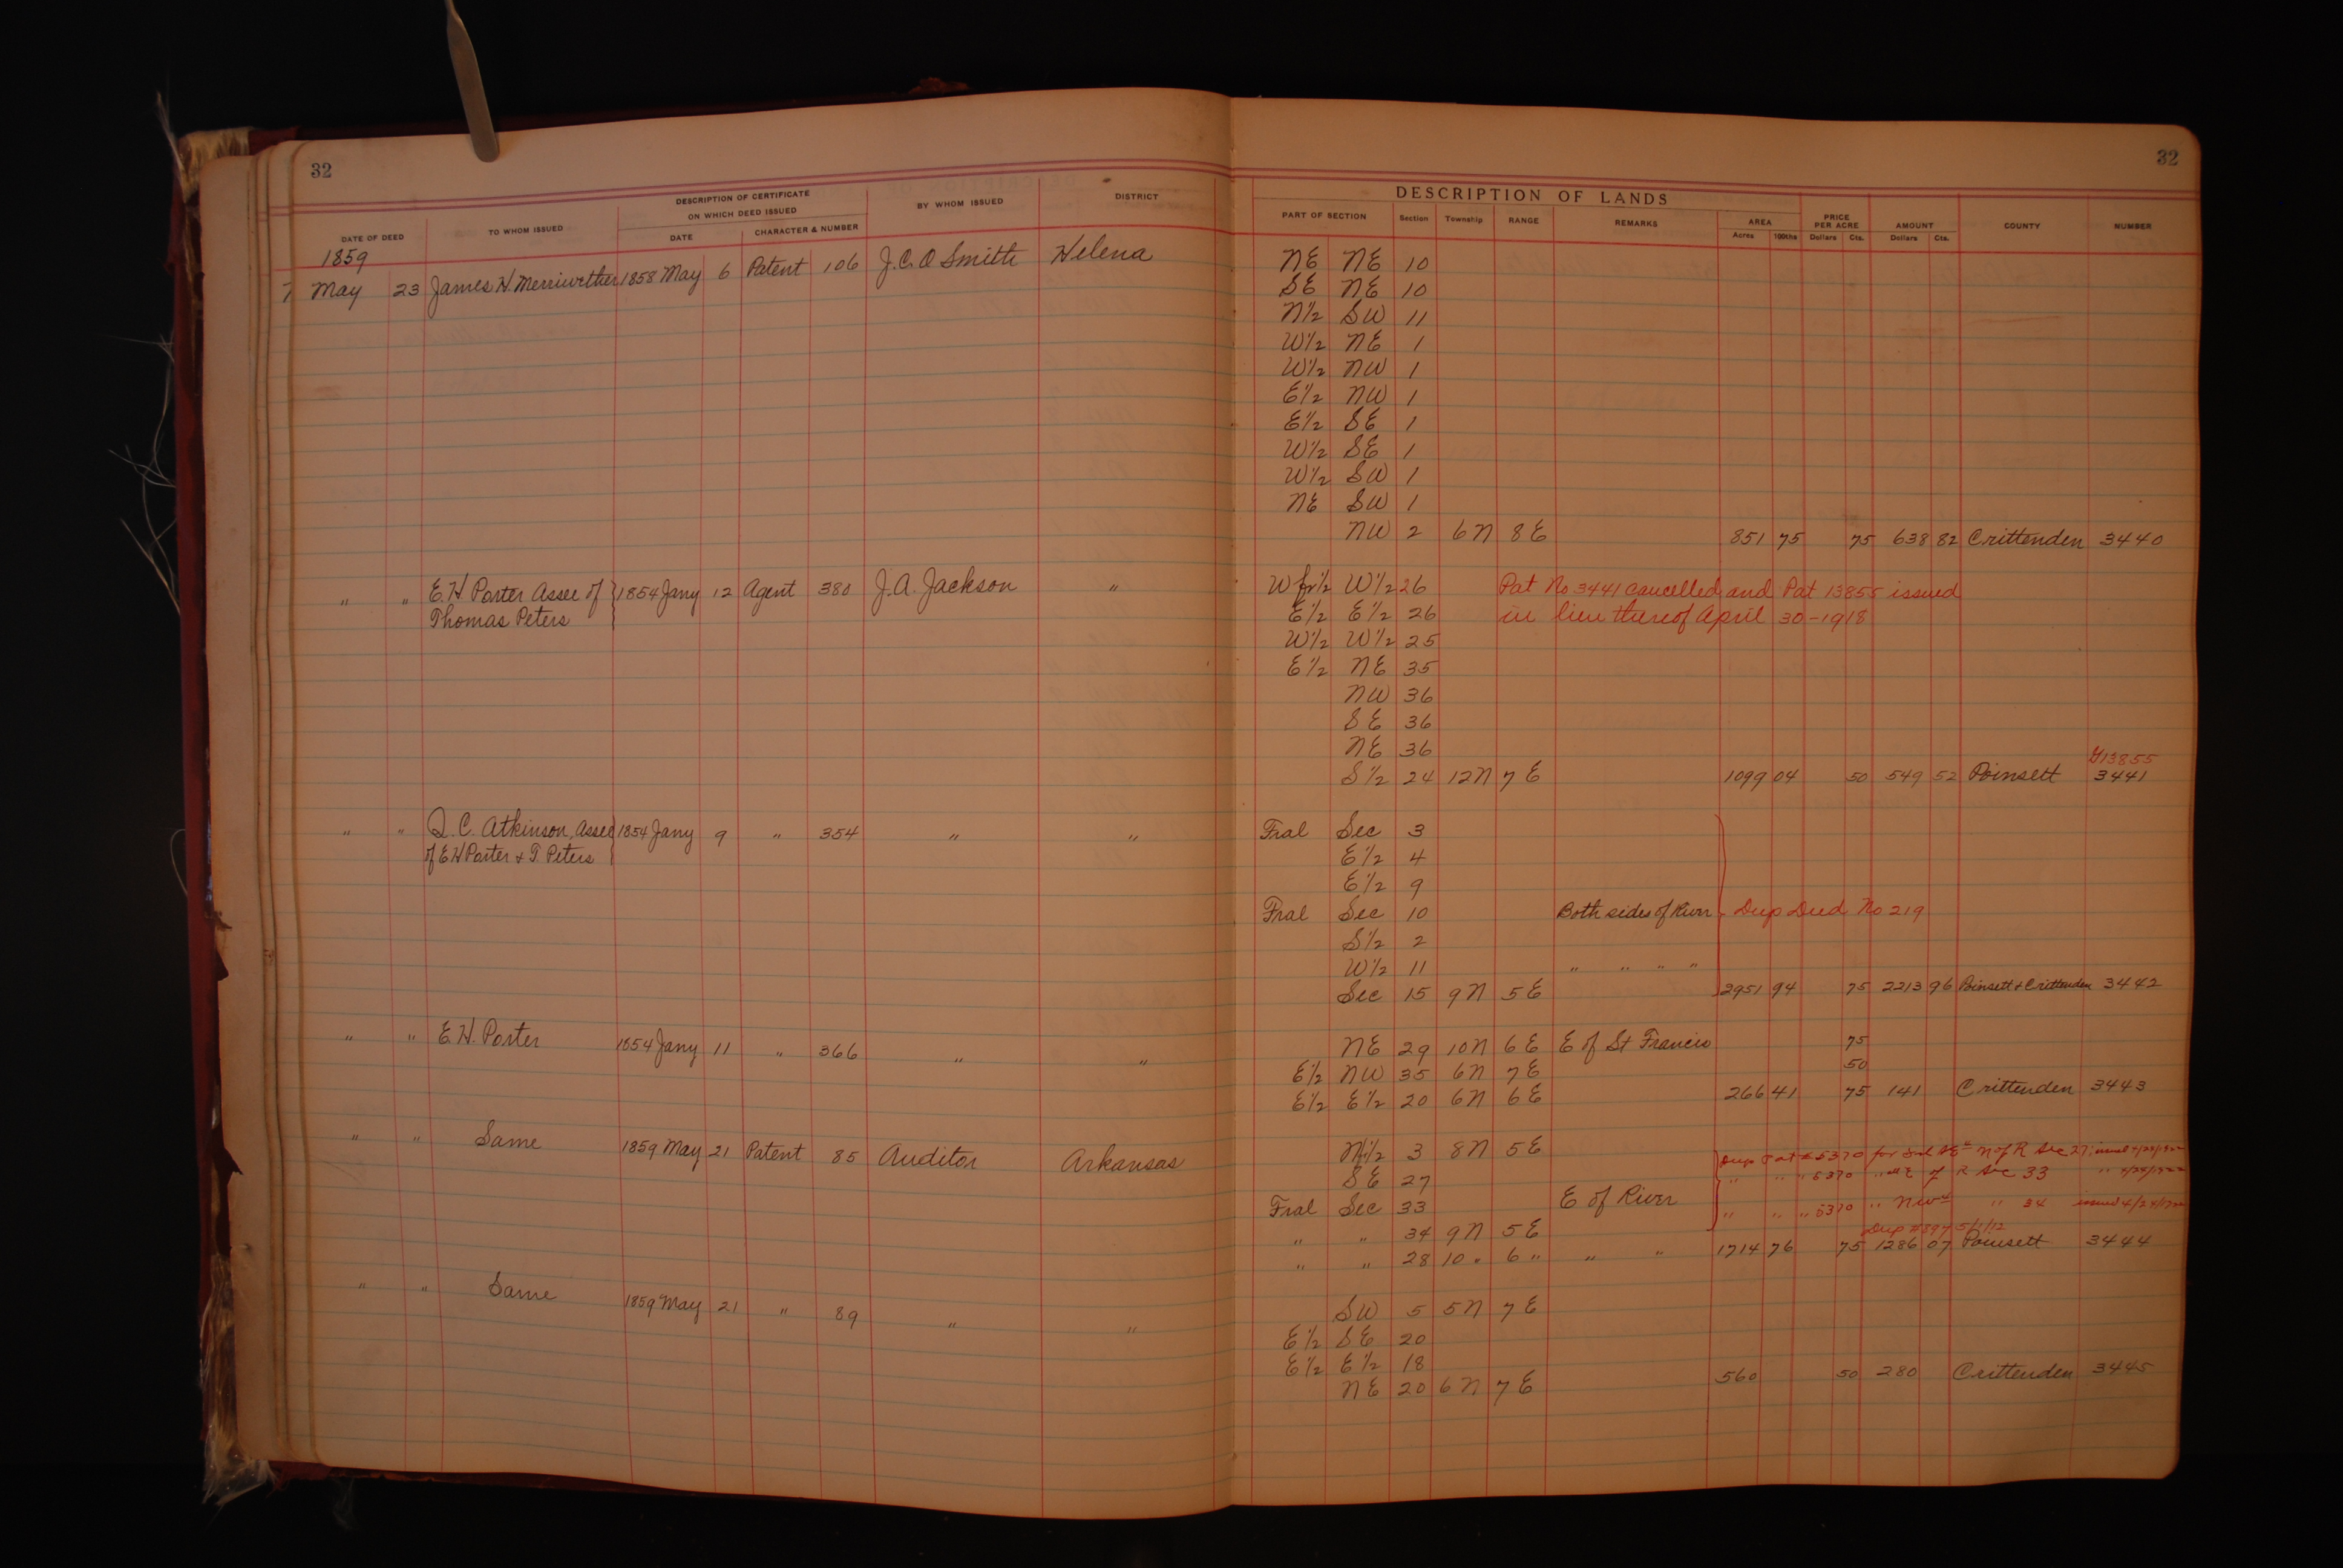 32
DATE OF DEED TO WHOM ISSUED DESCRIPTION OF CERTIFICATE ON WHICH DEED ISSUED DATE CHARACTER & NUMBER BY WHOM ISSUED DISTRICT
1859
May 23 James H. Merriwether 1858 May 6 Patent 106 J.C.O Smith Helena
" " E. H Porter Assee of 1854 Jany 12 Agent 380 J.A. Jackson "
Thomas Peters
" " Q. C. Atkinson, Assee 1854 Jany 9 " 354 " "
of E H Porter + T. Peters
" " E. H. Porter 1854 Jany 11 " 366 " "
" " Same 1859 May 21 Patent 85 Auditor Arkansas
" " Same 1859 May 21 " 89 " "
32
DESCRIPTION OF LANDS
PART OF SECTION Section Township RANGE REMARKS AREA Acres 100ths PRICE PER ACRE Dollars Cts. AMOUNT Dollars Cts. COUNTY NUMBER
NE NE 10
SE NE 10
N½ SW 11
W½ NE 1
W½ NW 1
E½ NW 1
E½ SE 1
W½ SE 1
W½ SW 1
NE SW 1
NW 2 6N 8E 851 75 75 638 82 Crittenden 3440
W fr½ W½ 26 Pat No 3441 cancelled and Pat 13855 issued
E½ E½ 26 in lieu thereof April 30-1918
W½ W½ 25
E½ NE 35
NW 36
SE 36
NE 36
13855
S½ 24 12N 7E 1099 04 50 549 52 Poinsett 3441
Fral Sec 3
E½ 4
E½ 9
Fral Sec 10 Both sides of River Dup Deed No 219
S½ 2
W½ 11 " " " "
Sec 15 9N 5E 2951 94 75 2213 96 Poinsett + Crittenden 3442
NE 29 10N 6E E of St Francis 75
E½ NW 35 6N 7E 50
E½ E½ 20 6N 6E 266 41 75 141 Crittenden 3443
N½ 3 8N 5E Dup Pat # 5370 for N of R Sec 27
SE 27 " " " 5370 " E of R Sec 33
Fral Sec 33 E of River " " " 5370 " " 34
" " 34 9N 5E Dup 5/1/12
" " 28 10 " 6 " " " 1714 76 75 1286 07 Poinsett 3444
SW 5 5N 7E
E½ SE 20
E½ E½ 18
NE 20 6N 7E 560 50 280 Crittenden 3445